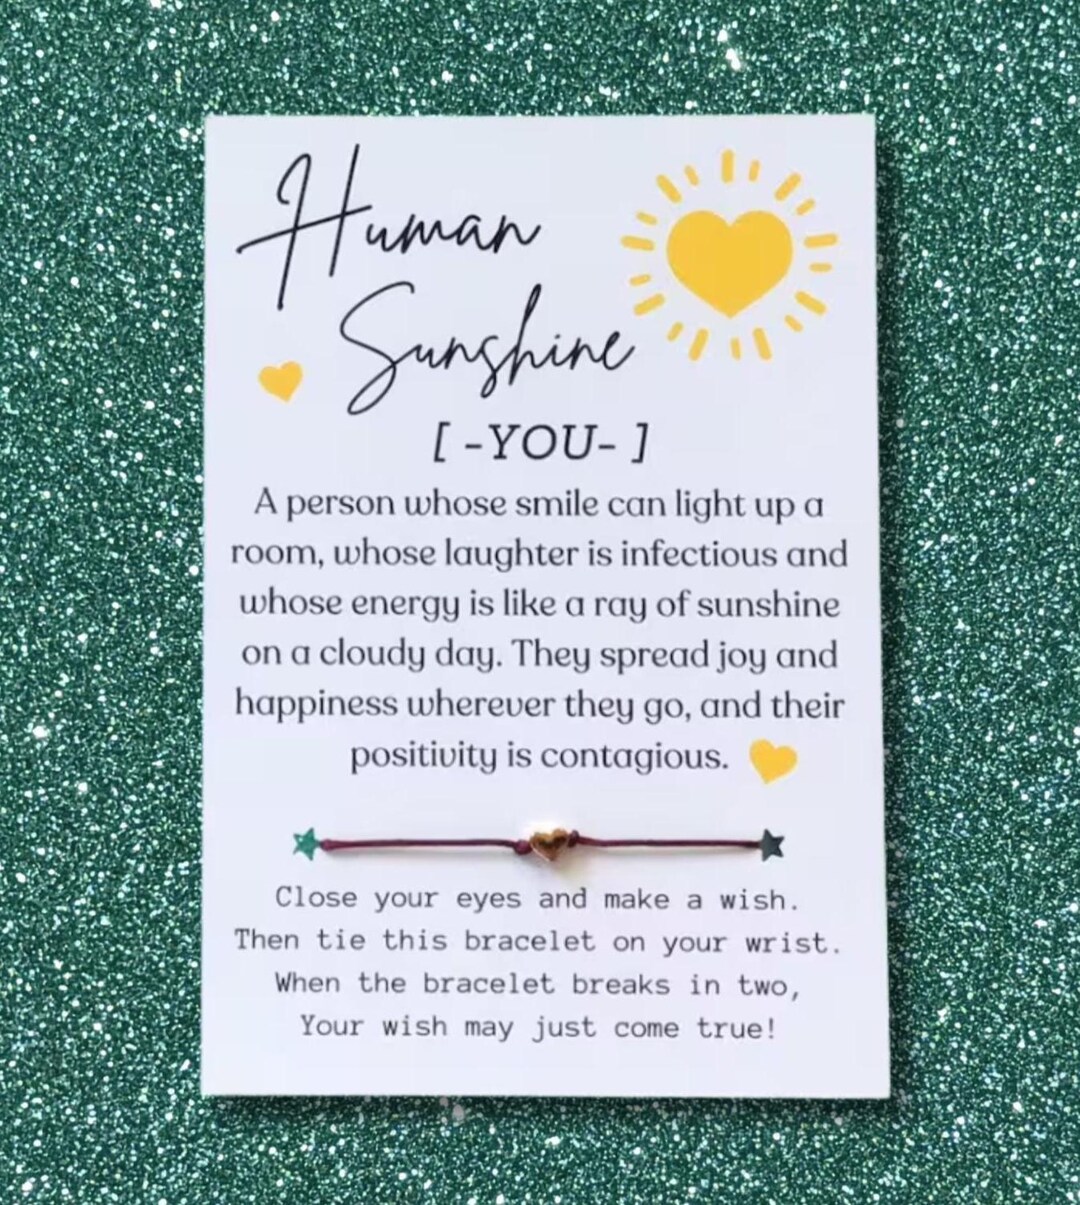 Human
Sunshine
[ -YOU- ]
A person whose smile can light up a
room, whose laughter is infectious and
whose energy is like a ray of sunshine
on a cloudy day. They spread joy and
happiness wherever they go, and their
positivity is contagious.
Close your eyes and make a wish.
Then tie this bracelet on your wrist.
When the bracelet breaks in two,
Your wish may just come true!